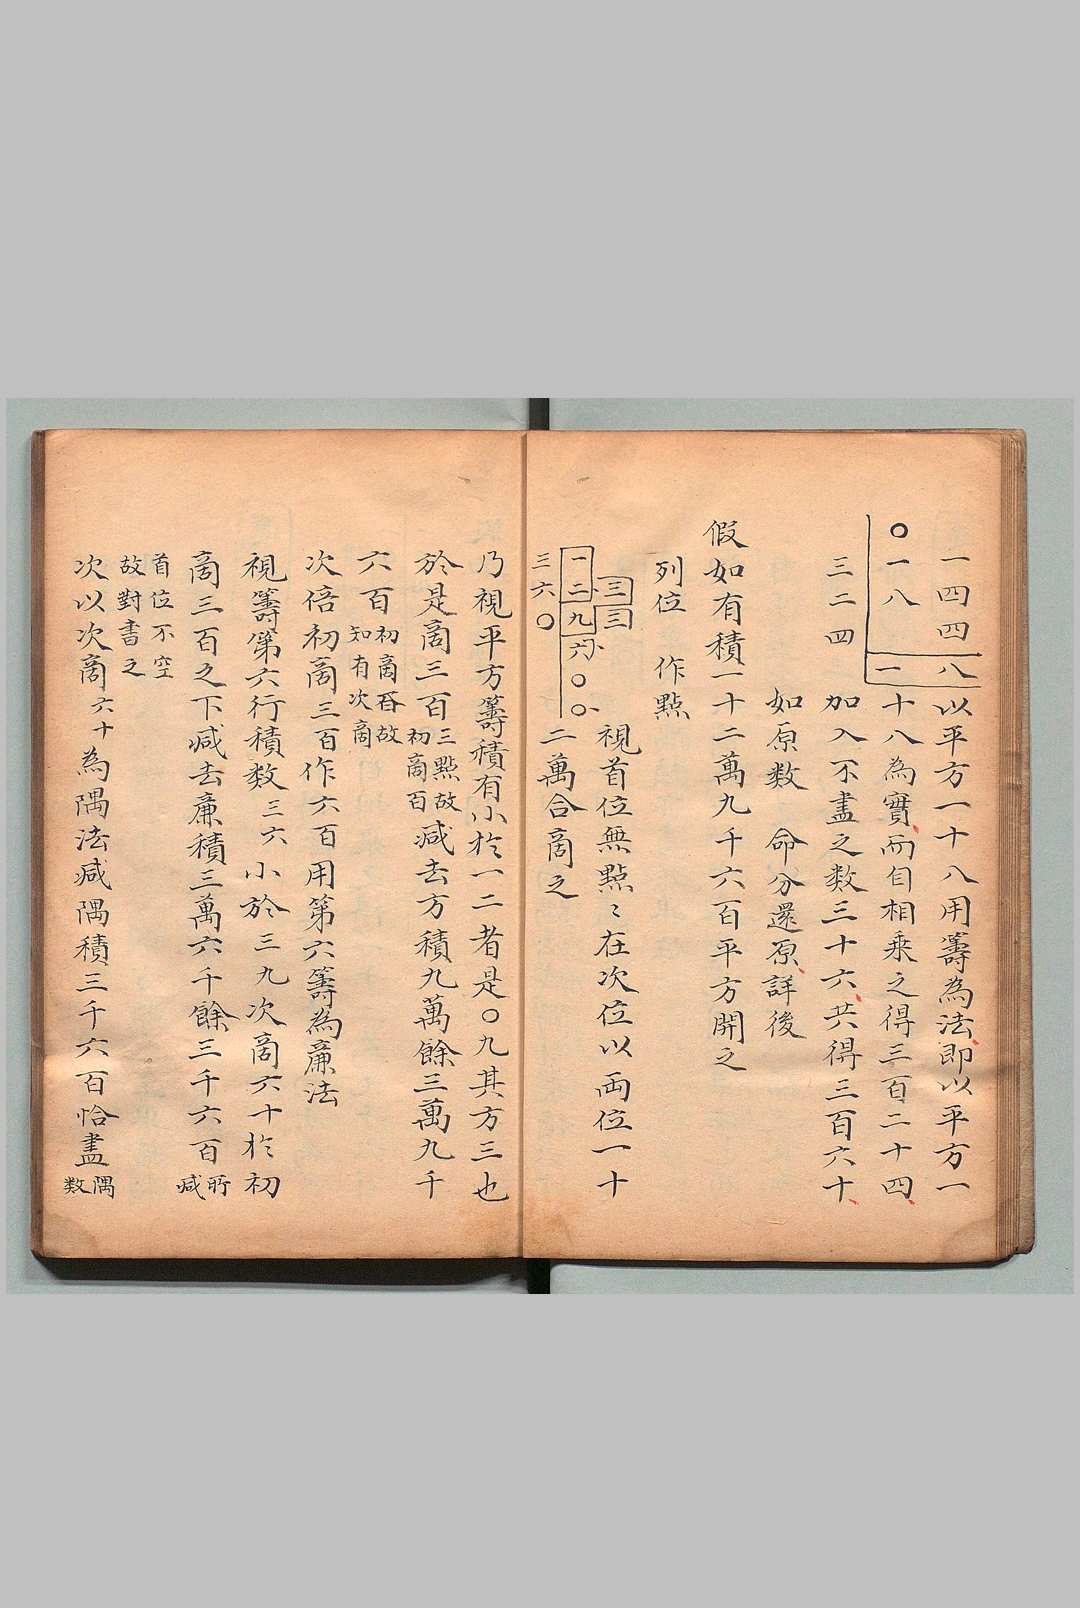 一四四八以平方一十八用籌為法即以平方一
〇一八一十八為實而自相乘之得三百二十四
三二四 加入不盡之数三十六共得三百六十
如原数 命分還原詳後
假如有積一十二萬九千六百平方開之
列位 作點
三三 視首位無點〻在次位以兩位一十
一二九六〇〇二萬合商之
三六〇
乃視平方籌積有小於一二者是〇九其方三也
於是商三百三點故初商百減去方積九萬餘三萬九千
六百初商百故知有次商
次倍初商三百作六百用第六籌為廉法
視籌第六行積数三六小於三九次商六十於初
商三百之下減去廉積三萬六千餘三千六百所減
首位不空故對書之
次以次商六十為隅法減隅積三千六百恰盡隅数